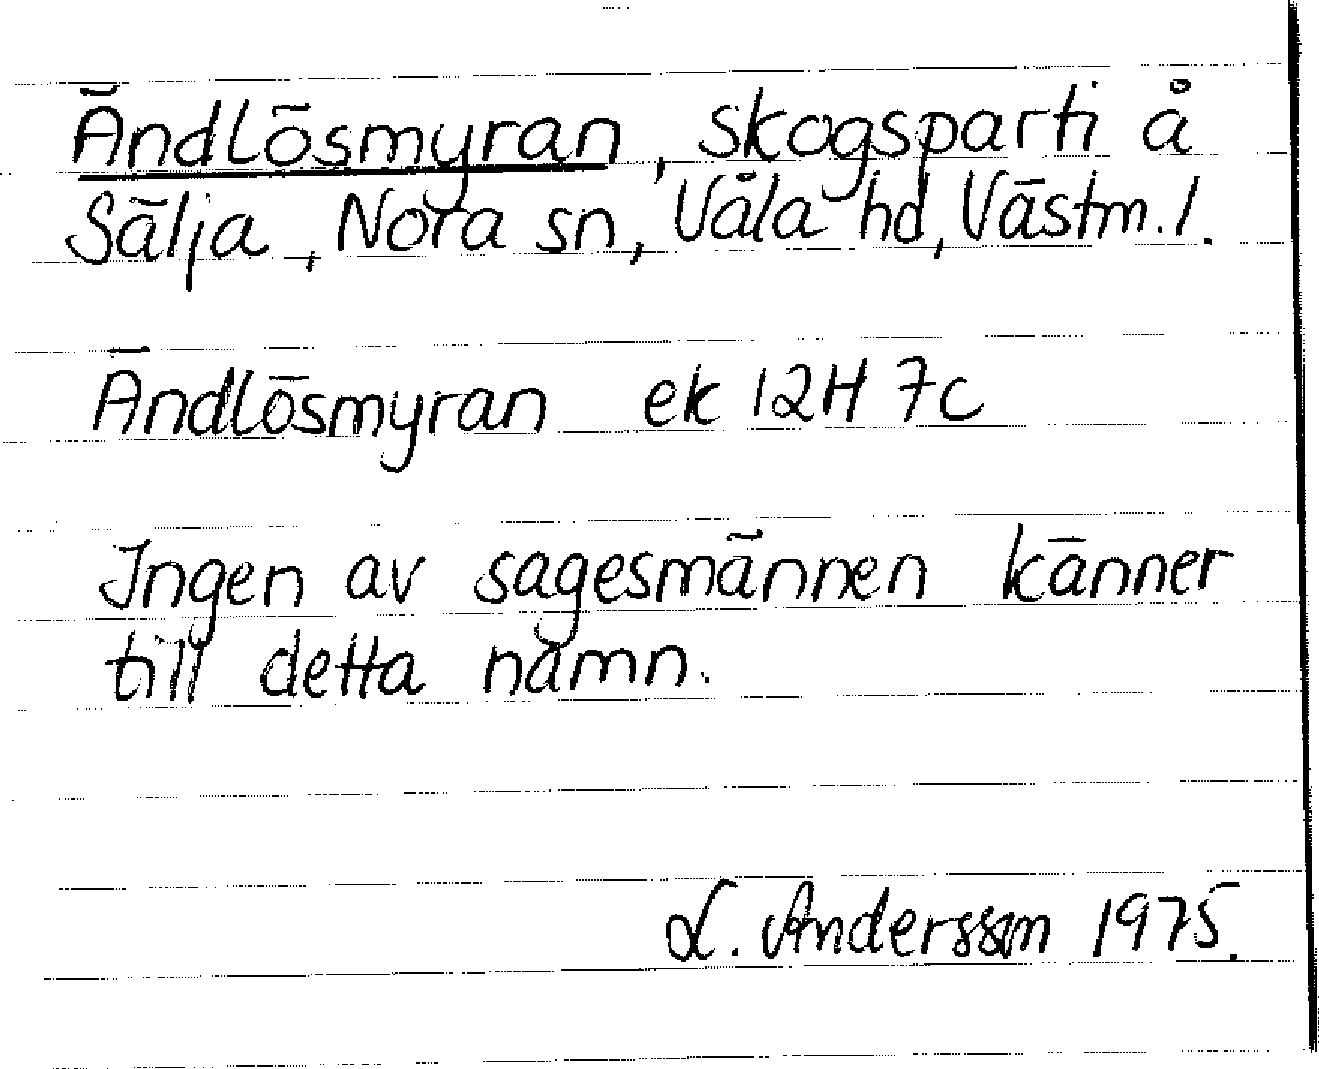 Ändlösmyran, skogsparti å
Sälja, Nora sn, Våla hd, Västm. l.
Ändlösmyran ek 12H 7c
Ingen av sagesmännen känner
till detta namn.
L. Andersson 1975.